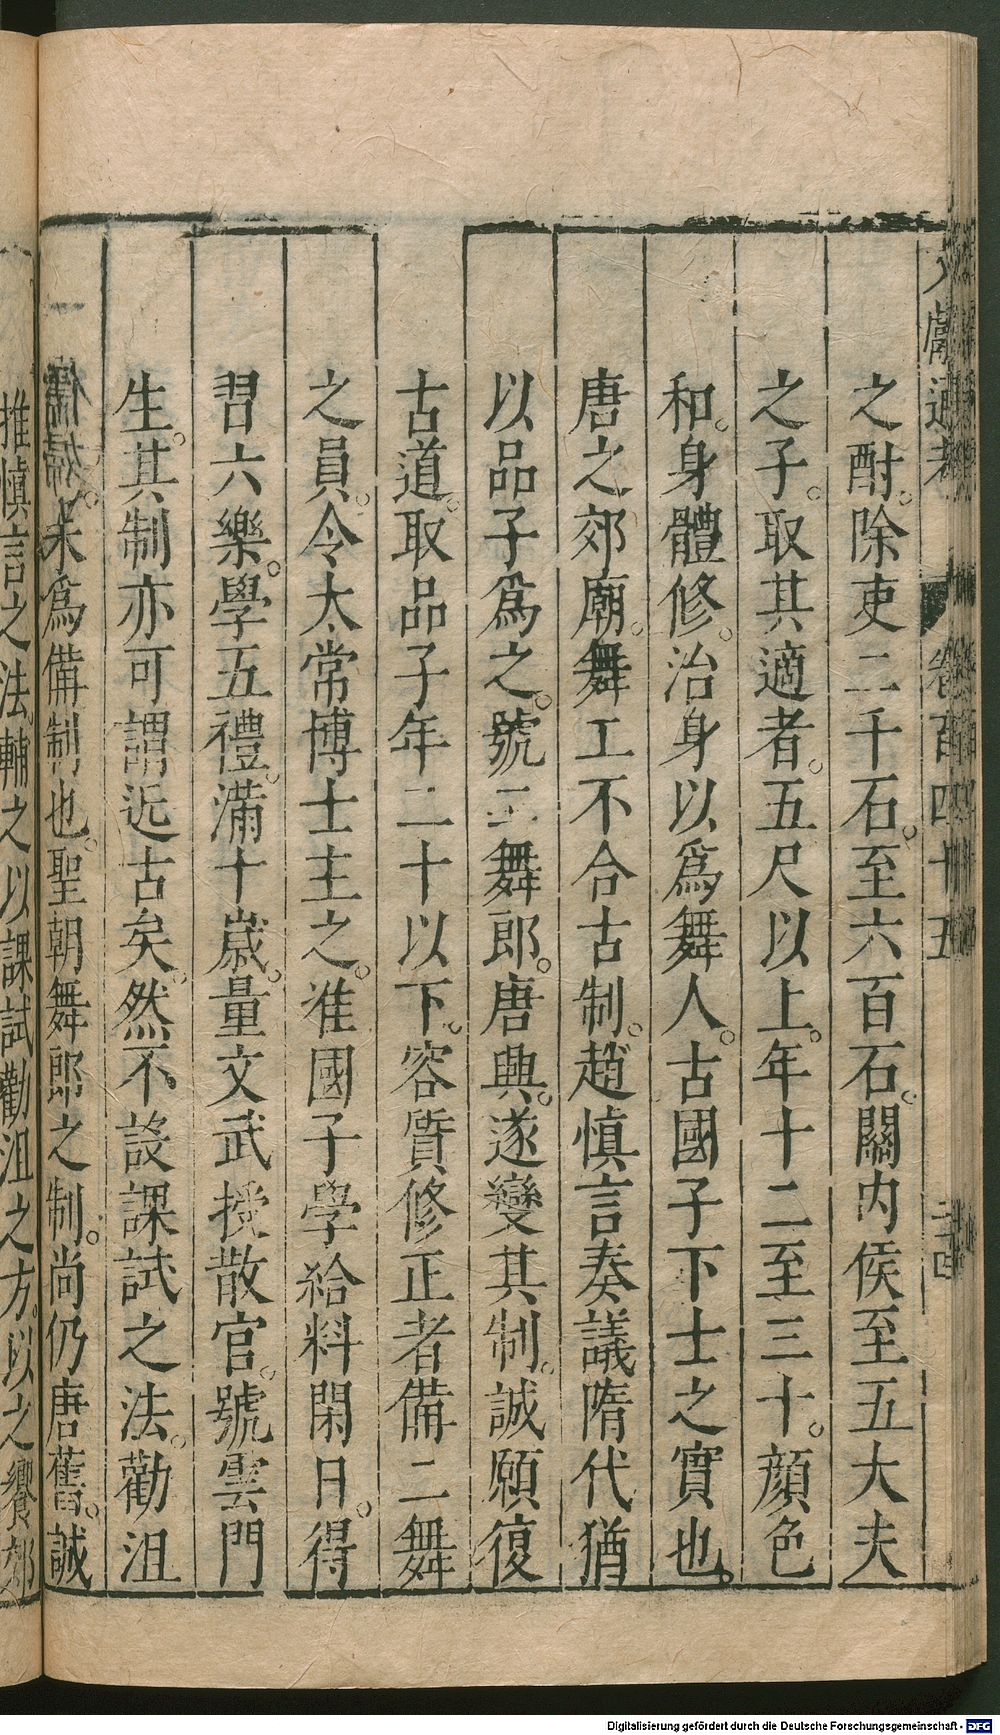 文獻通考 卷百四十五 二十四
之酎。除吏二千石。至六百石。關內侯至五大夫
之子。取其適者。五尺以上。年十二至三十。顔色
和。身體修。治身以爲舞人。古國子下士之實也。
唐之郊廟。舞工不合古制。趙慎言奏議隋代猶
以品子爲之。號二舞郎。唐興。遂變其制。誠願復
古道。取品子年二十以下。容質修正者備二舞
之員。令太常博士主之。准國子學給料閑日。得
習六樂。學五禮。滿十歲。量文武授散官。號雲門
生。其制亦可謂近古矣。然不設課試之法。勸沮
未爲備制也。聖朝舞郎之制。尚仍唐舊。誠
推慎言之法。輔之以課試勸沮之方。以之饗郊
Digitalisierung gefördert durch die Deutsche Forschungsgemeinschaft - DFG